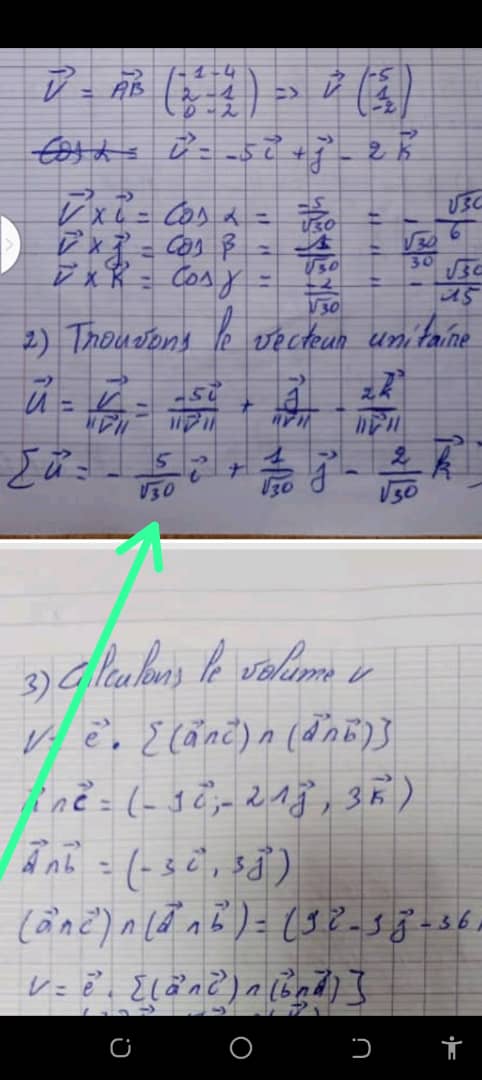 V⃗ = AB⃗ (-1-4 2-1 0-2) => V⃗ (-5 1 -2)
Cos α = V⃗ = -5i⃗ + j⃗ - 2k⃗
V⃗ x i⃗ = Cos α = -5/√30 = - √30/6
V⃗ x j⃗ = Cos β = 1/√30 = √30/30
V⃗ x k⃗ = Cos γ = -2/√30 = - √30/15
2) Trouvons le vecteur unitaire
U⃗ = V⃗/"V" = -5i⃗/"V" + j⃗/"V" - 2k⃗/"V"
[u⃗ = - 5/√30 i⃗ + 1/√30 j⃗ - 2/√30 k⃗
3) Calculons le volume v
V= e⃗ . [(a⃗nc⃗) n (d⃗nb⃗)]
nc⃗ = (- 9i⃗, - 21j⃗, 3k⃗)
d⃗nb⃗ = (-3i⃗, 3j⃗)
(a⃗nc⃗) n (d⃗nb⃗) = (9i⃗ - 9j⃗ - 36
V = e⃗ . [(a⃗nc⃗) n (b⃗nd⃗)]